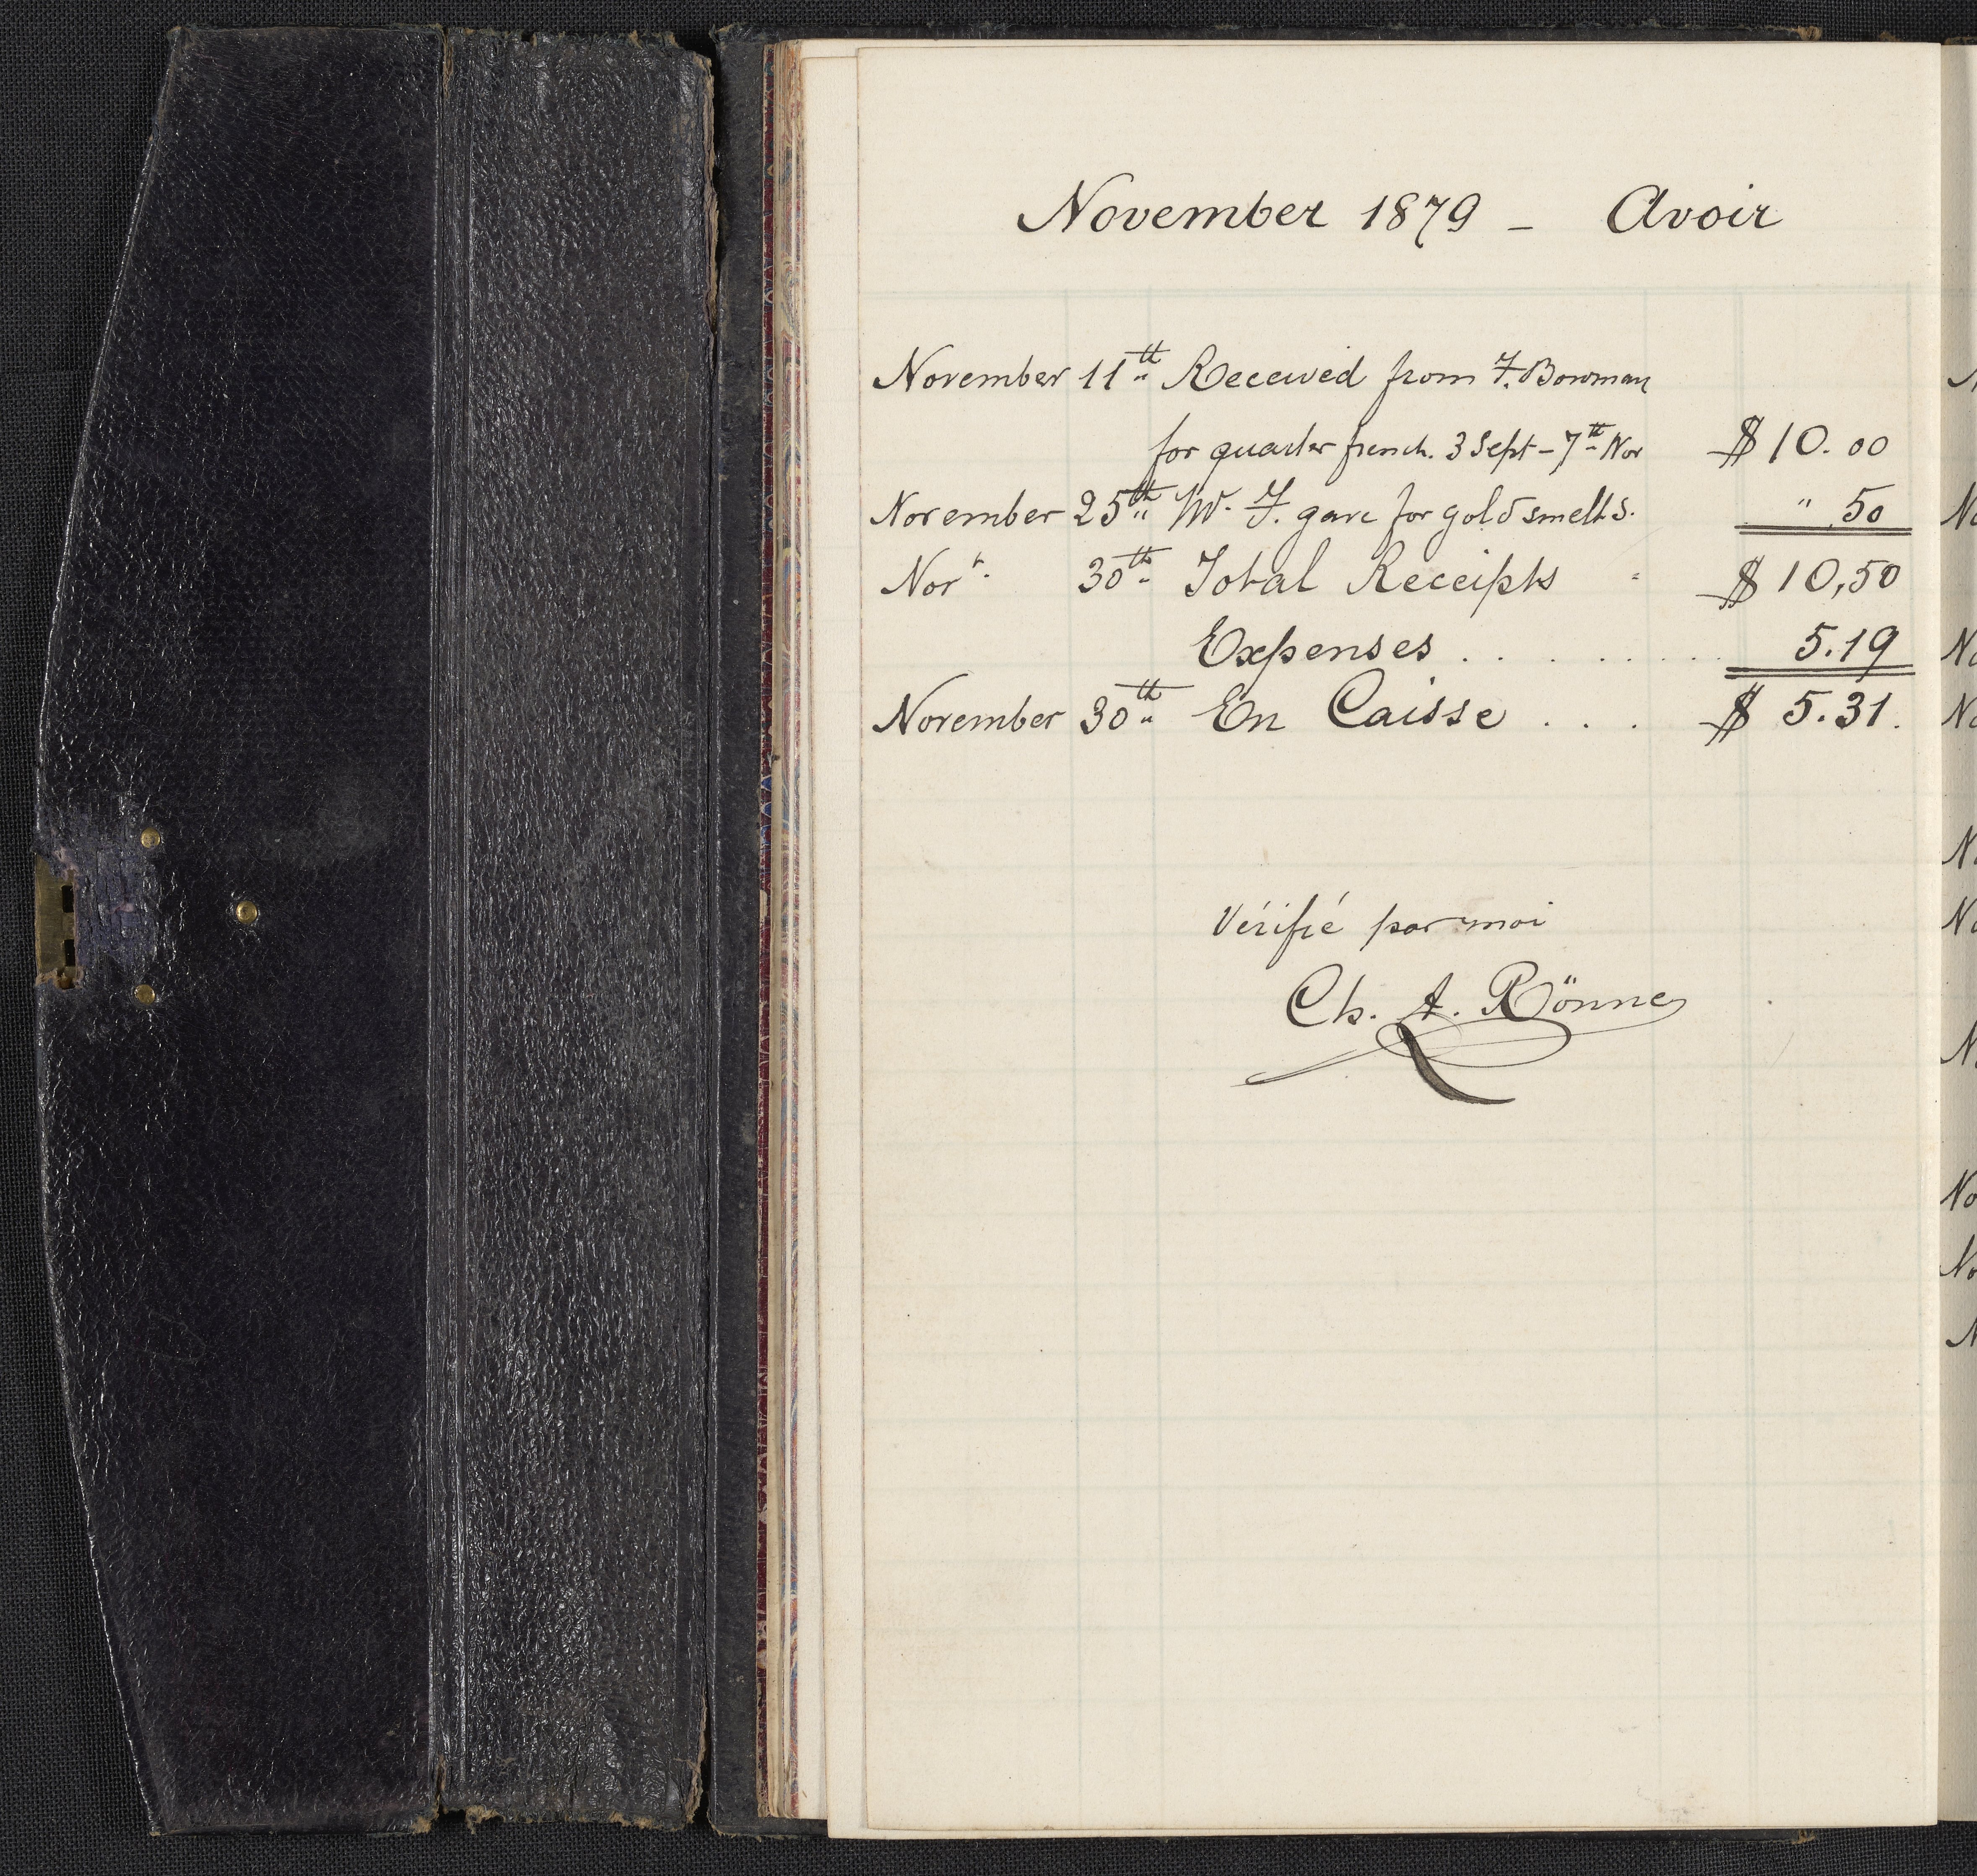 November 1879 – Avoir
November 11th Received from F. Bowman
for quarter french. 3 Sept – 7th Nov $10.00
November 25th W. F. gave for gold smelts. " 50
Novr. 30th Total Receipts $10,50
Expenses . . . . . . . . 5.19
November 30th En Caisse . . . $ 5.31.
Vérifié par moi
Ch. A. Rönne